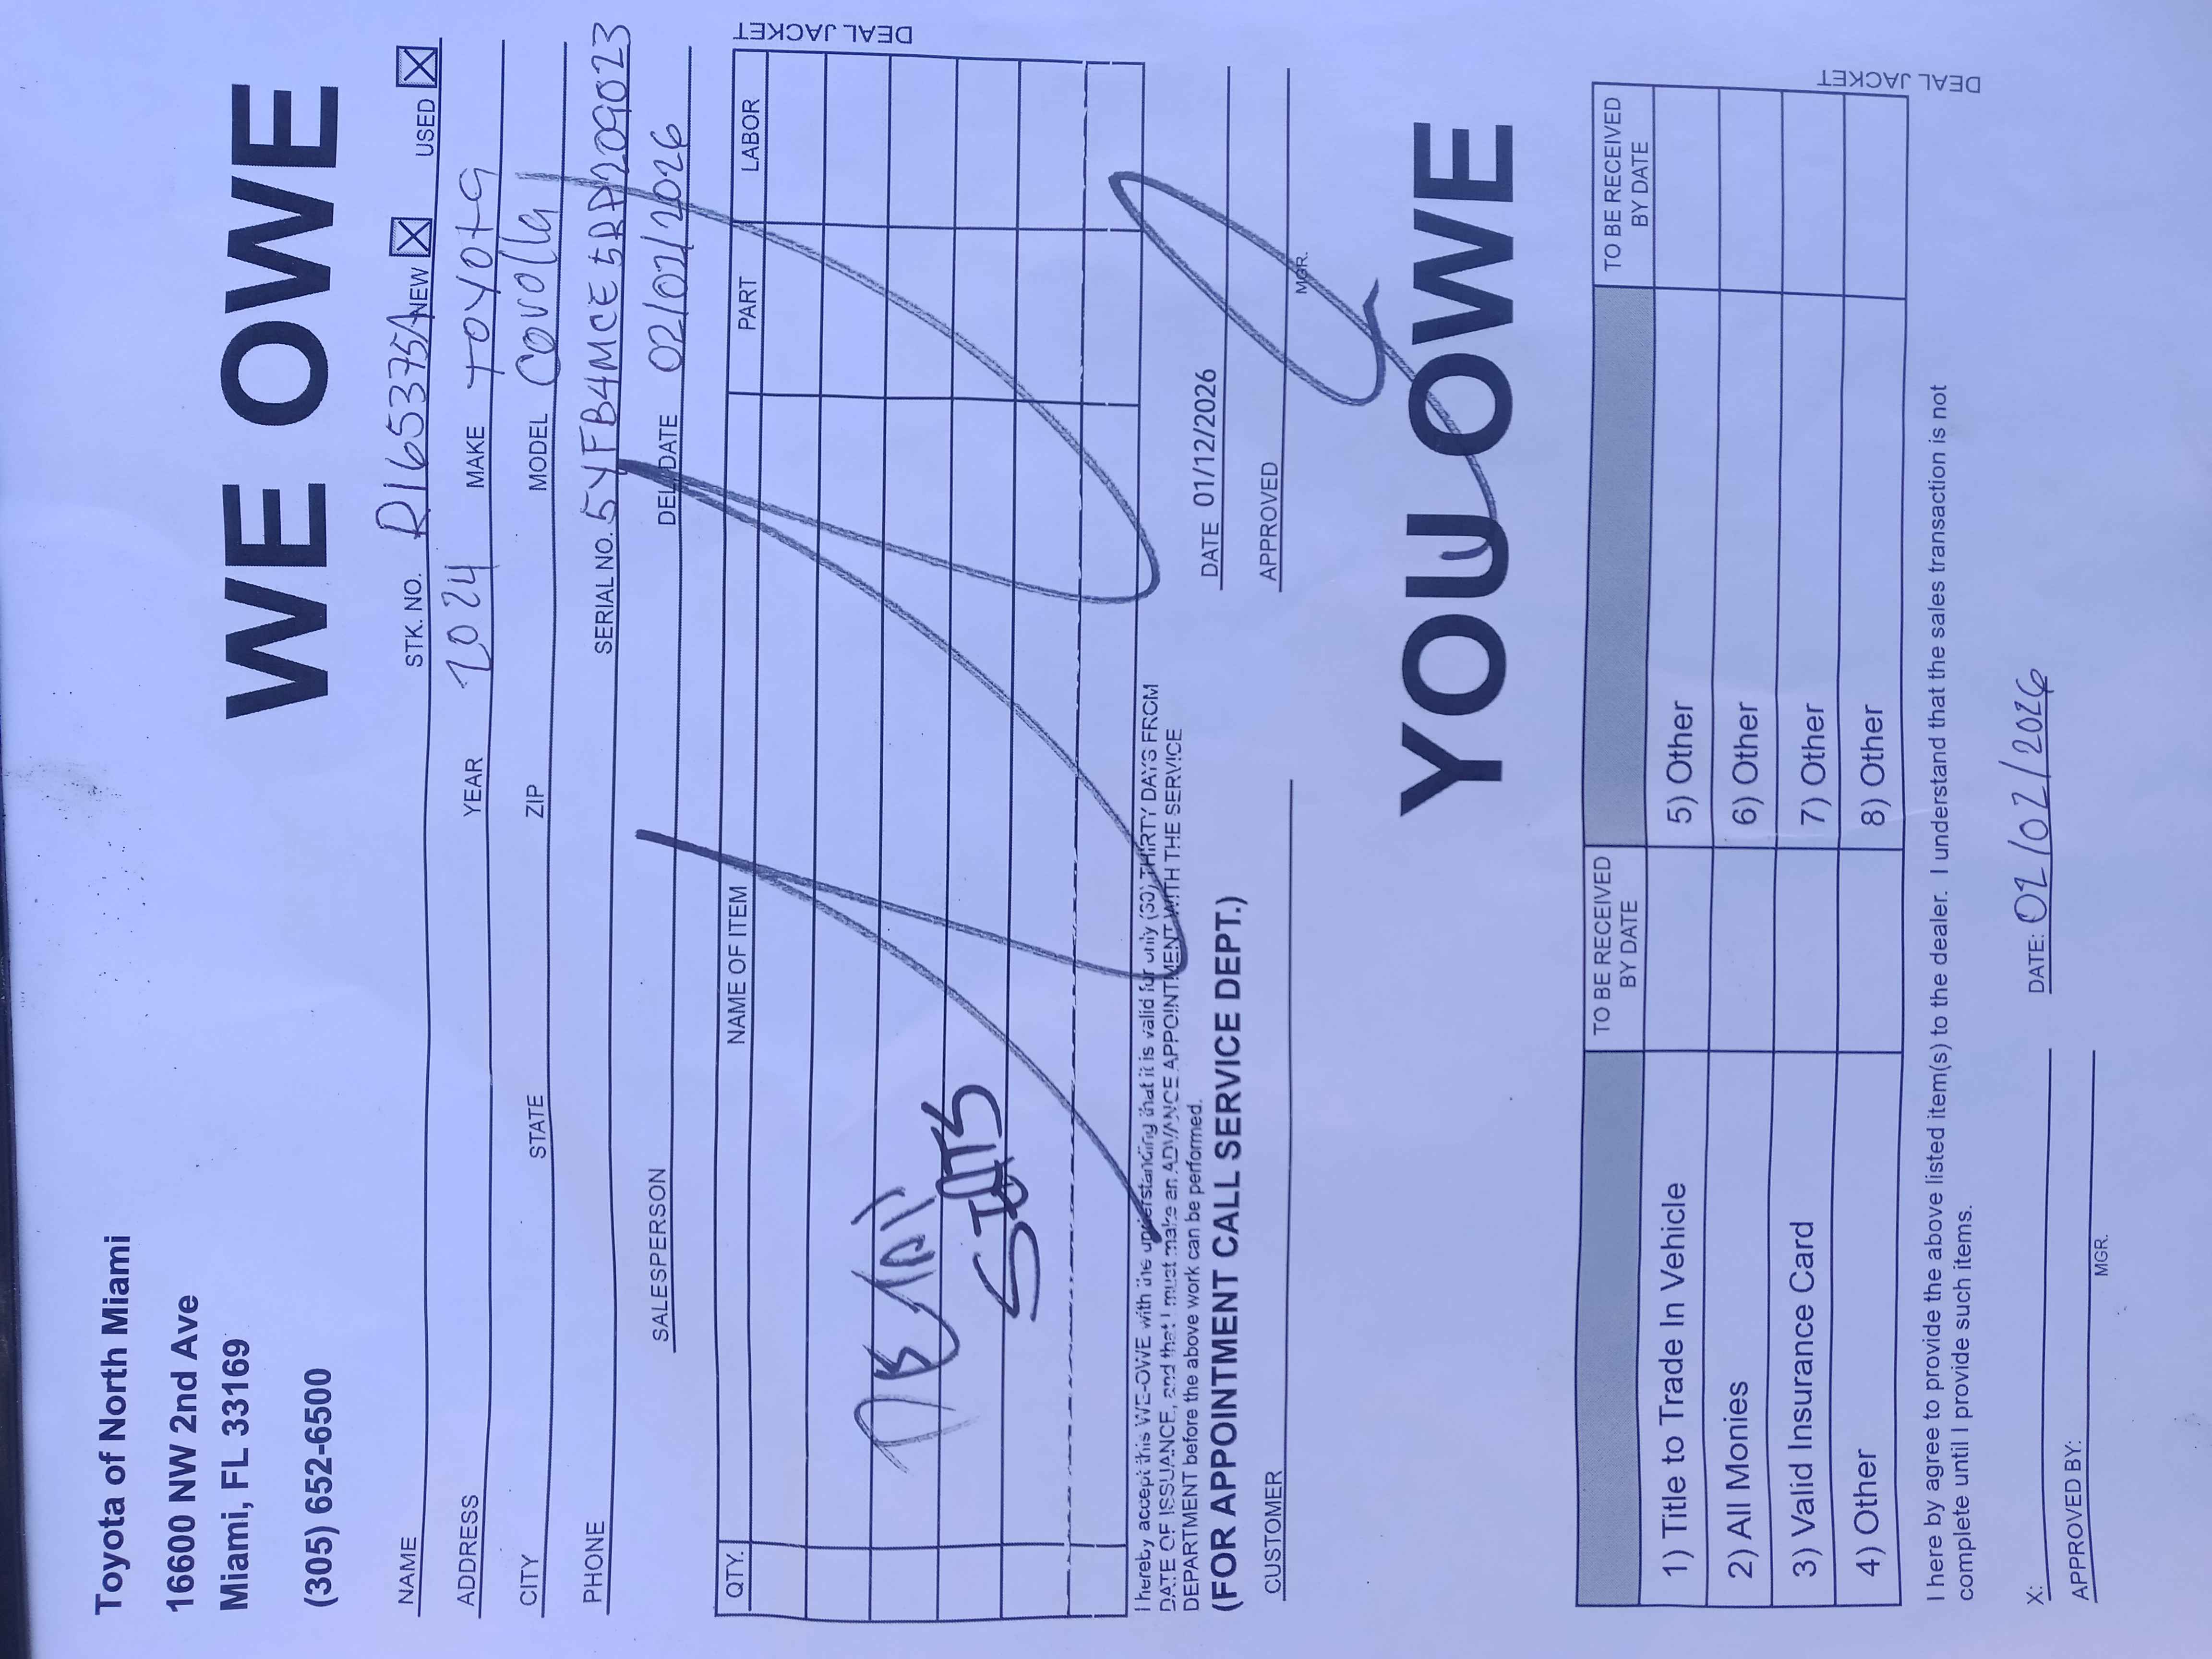 Toyota of North Miami
16600 NW 2nd Ave
Miami, FL 33169
(305) 652-6500
WE OWE
NAME STK. NO. R165375A NEW ☒ USED ☒
ADDRESS YEAR 2024 MAKE TOYOTA
CITY STATE ZIP MODEL Corolla
PHONE SERIAL NO. 5YFB4MCE5RP209023
SALESPERSON DEL. DATE 02/02/2026
QTY. NAME OF ITEM PART LABOR
DEAL JACKET
I hereby accept this WE-OWE with the understanding that it is valid for only (30) THIRTY DAYS FROM
DATE OF ISSUANCE, and that I must make an ADVANCE APPOINTMENT WITH THE SERVICE
DEPARTMENT before the above work can be performed.
(FOR APPOINTMENT CALL SERVICE DEPT.)
DATE 01/12/2026
CUSTOMER APPROVED
MGR.
YOU OWE
TO BE RECEIVED BY DATE TO BE RECEIVED BY DATE
1) Title to Trade In Vehicle 5) Other
2) All Monies 6) Other
3) Valid Insurance Card 7) Other
4) Other 8) Other
DEAL JACKET
I here by agree to provide the above listed item(s) to the dealer. I understand that the sales transaction is not
complete until I provide such items.
X: DATE: 02/02/2026
APPROVED BY:
MGR.